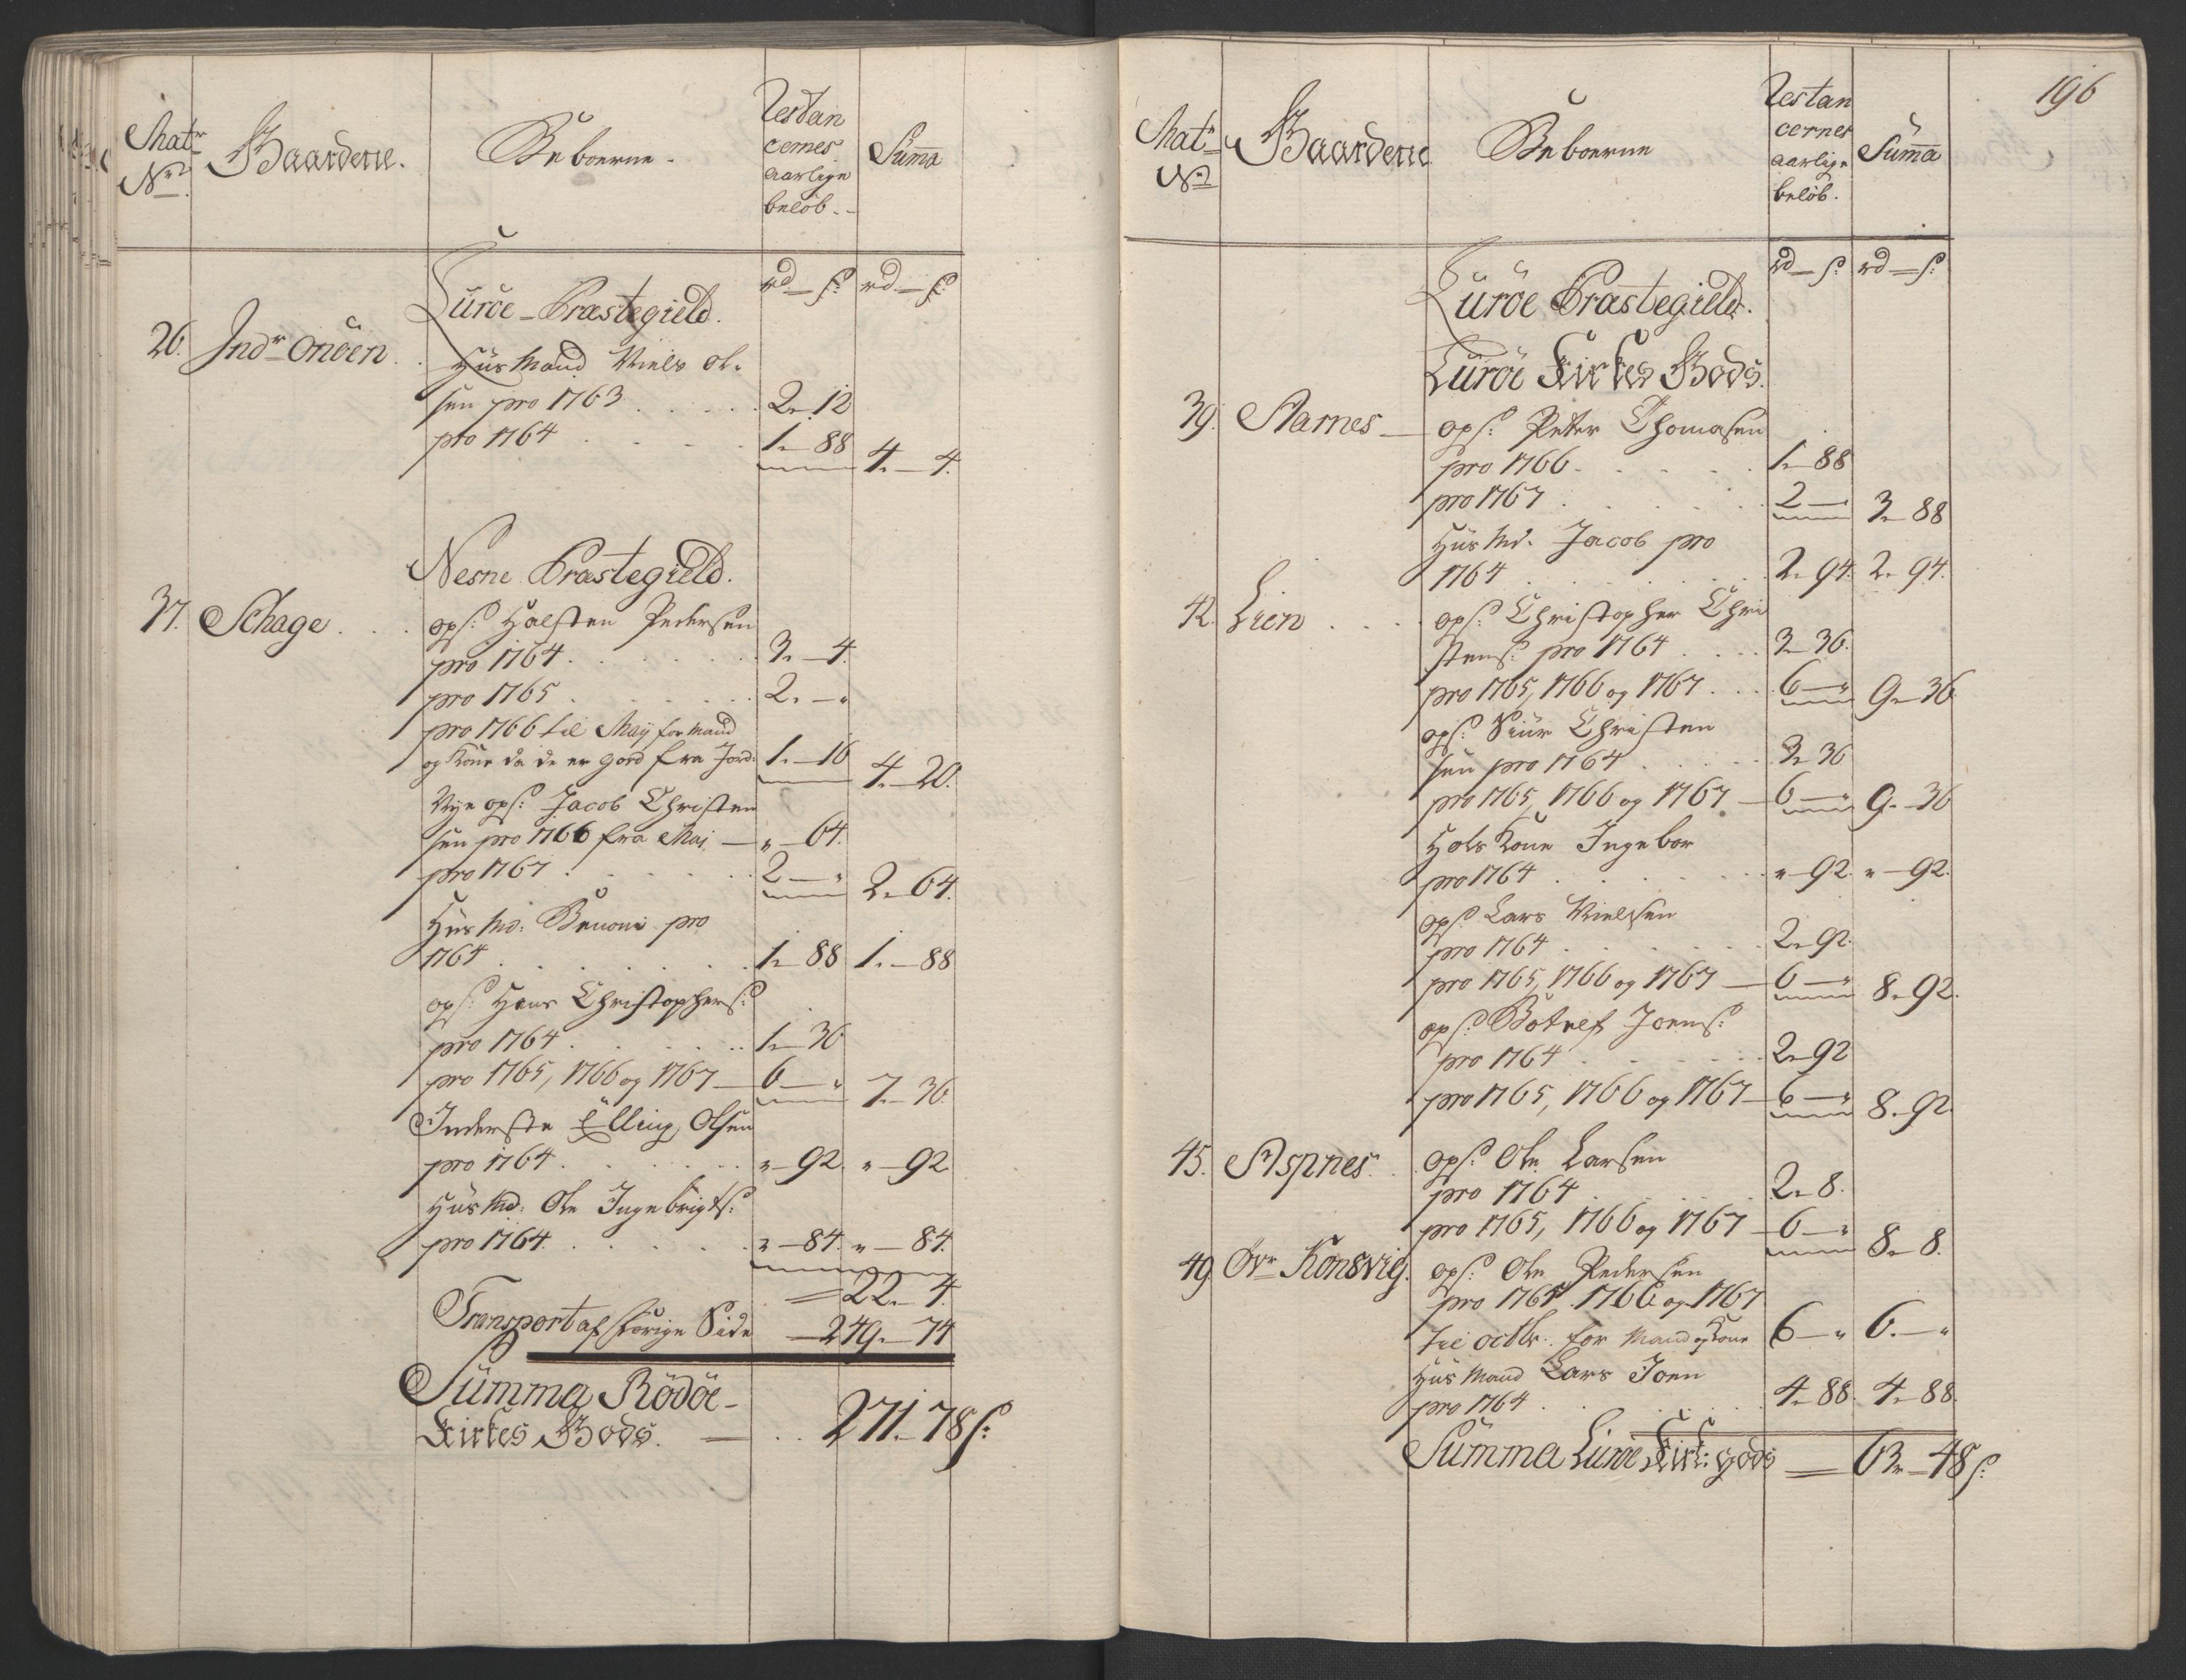 Matr
No
Gaardene.
Beboerne.
Restan
cernes
aarlige
beløb.
Summa
rd — s: rd — s:
Luröe Præstegield.
26. Indr Onöen . . Huusmand Niels Ol-
sen pro 1763 . . . . . 2 - 12
pro 1764 . . . . . 1 - 88 4 - 4.
Nesne Præstegield.
37. Schage . . . ops: Halsten Pedersen
pro 1764 . . . . . . 3 - 4.
pro 1765 . . . . . . 2. - "
pro 1766 til Maÿ for Mand
og Kone da de er gord fra Jord: 1. - 16 4 - 20.
Nye ops: Jacob Christen
sen pro 1766 fra Maj — " - 64.
pro 1767 . . . . . . 2 — " 2 - 64.
Huusmd: Benoni pro
1764 . . . . . . . 1 - 88 1. - 88
ops: Hans Christophers:
pro 1764 . . . . . . 1 - 36
pro 1765, 1766 og 1767 — 6 — " 7 - 36.
Inderste Elling Olsen
pro 1764 . . . . . . " - 92. " - 92
Huusmd: Ole Ingebrigts:
pro 1764. . . . . . " - 84. " - 84.
= 22. - 4.
Transport af forige Side — 249. - 74
Summa Rödöe
Kirkes Gods. — . . 271. 78 s:
196
Matr
No
Gaardene
Beboerne
Restan
cernes
aarlige
beløb.
Summa
rd — s: rd — s:
Luröe Præstegield.
Luröe Kirkes Gods.
39. Aarnes — ops: Peter Thomasen
pro 1766 . . . . . 1 - 88
pro 1767 . . . . . . 2 — 3 - 88
Huusmd. Jacob pro
1764 . . . . . . . 2 - 94. 2 - 94.
42. Lien . . . . ops: Christopher Chri
stens: pro 1764 . . . . 3 - 36.
pro 1765, 1766 og 1767 . . . 6 — " 9 - 36
ops: Siur Christen
sen pro 1764 . . . . . 3 - 36
pro 1765, 1766 og 1767 — 6 — " 9 - 36
Hols Kone Ingebor
pro 1764 . . . . . . " - 92. " - 92.
ops: Lars Nielsen
pro 1764 . . . . . . 2 - 92.
pro 1765, 1766 og 1767 — 6 — " 8 - 92.
ops: Botolf Joens:
pro 1764 . . . . . . 2 - 92
pro 1765, 1766 og 1767 — 6 — " 8 - 92
45. Aspnes. . ops: Ole Larsen
pro 1764 . . . . . 2 - 8.
pro 1765, 1766 og 1767 — 6 — " 8 - 8.
49 Ovr Konsvig. ops: Ole Pedersen
pro 1765 1766 og 1767
til octbr. for Mand og Kone 6 - " 6. - "
Huusmand Lars Joen
pro 1764 . . . . . . 4 - 88. 4 - 88.
Summa Luröe Kirk: gods = 63 - 48 s: